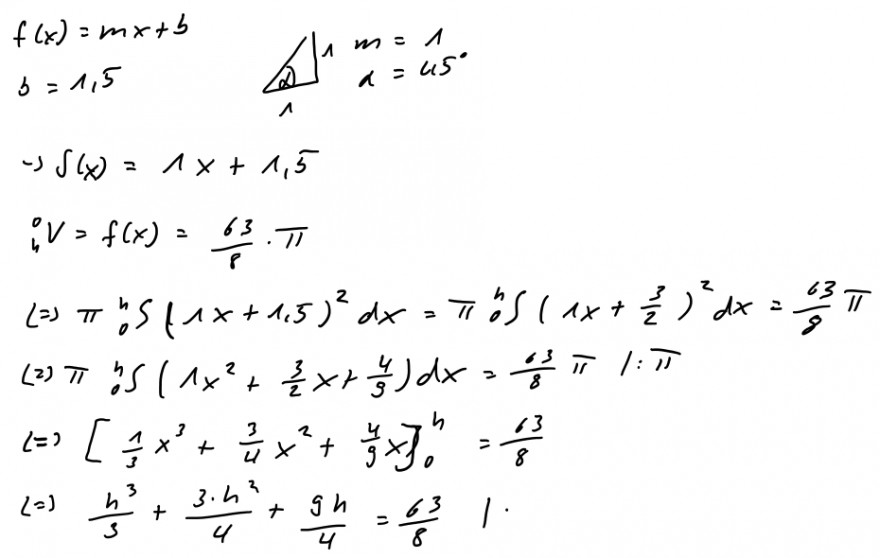 f(x) = mx+b
b = 1,5
α 1 1
m = 1
α = 45°
-> f(x) = 1x + 1,5
ₕ⁰V = f(x) = 63/8 · π
(=) π ₀ʰ∫(1x + 1,5)² dx = π ₀ʰ∫(1x + 3/2)² dx = 63/8 π
(=) π ₀ʰ∫(1x² + 3/2x + 4/9)dx = 63/8 π |:π
(=) [1/3 x³ + 3/4 x² + 4/9 x]₀ʰ = 63/8
(=) h³/3 + 3·h²/4 + 9h/4 = 63/8 | ·